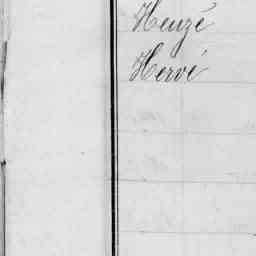 Heuzé
Hervé